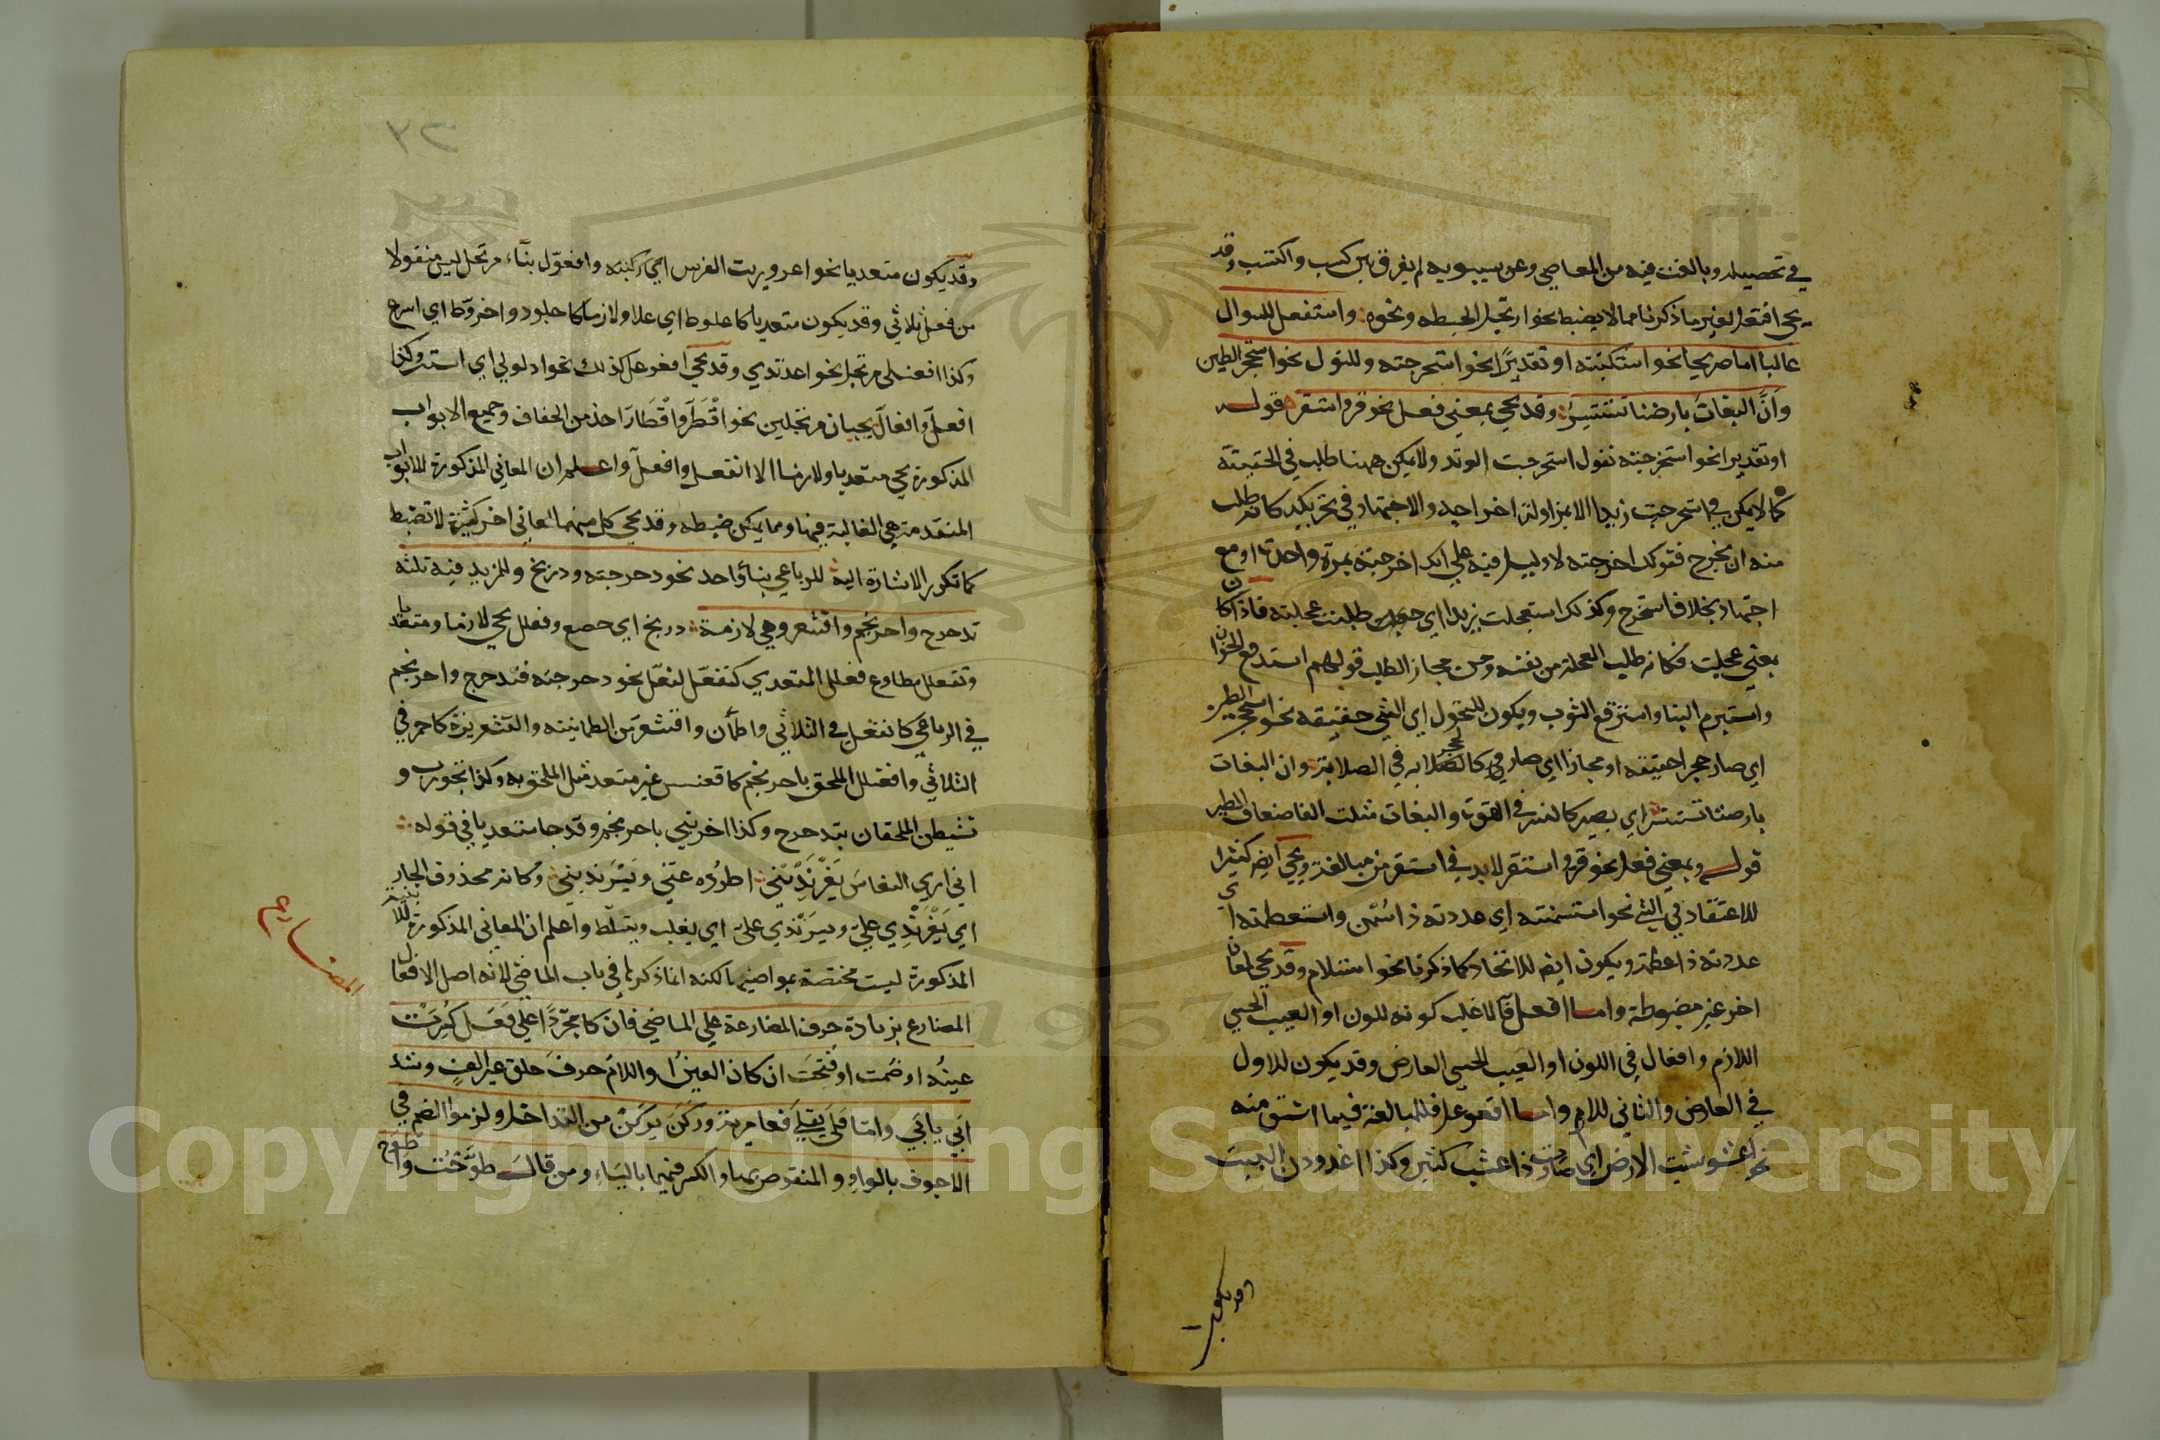 في تحصيله وبالغت فيه من المعاصي وعن سيبويه لم يفرق بين كسب واكتسب وقد
يجي افتعل لغير ما ذكرنا مما لا يضبط نحو ارتجل الخطبة ونحوه واستفعل للسوال
غالبا اما صريحا نحو استكتبته او تقديرا نحو استخرجته وللتحول نحو استحجر الطين
وان البغاث بارضنا تستنسر وقد يجي بمعني فعل نحو قر واستقر قوله
او تقديرا نحو استخرجته تقول استخرجت الوتد ولا يمكن ههنا طلب في الحقيقة
كما لا يمكن في استخرجت زيدا الا بمزاولة اخراجه والاجتهاد في تحريكه كانه طلب
منه ان يخرج فقولك اخرجته لا دليل فيه علي انك اخرجته بمرة واحدة او مع
اجتهاد بخلاف استخرج وكذلك استعجلت زيدا اي طلبت عجلته فاذا كان
بمعني عجلت فكانه طلب العجلة من نفسه ومن مجاز الطلب قولهم استرفع الخوان
واسترم البنا واسترقع الثوب ويكون للتحول اي الشي حقيقة نحو استحجر الطين
اي صار حجرا حقيقة او مجازا اي صار كالحجر في الصلابة وان البغاث
بارضنا تستنسر اي يصير كالنسر في القوة والبغاث مثلث الفا ضعاف الطير
قوله وبمعني فعل نحو قر واستقر لا بد في استقر من مبالغة ويجي ايض كثيرا
للاعتقاد في الشي نحو استسمنته اي عددته ذا سمن واستعظمته اي
عددته ذا عظمة ويكون ايض للاتخاذ كما ذكرنا نحو استلام وقد يجي لمعان
اخر غير مضبوطة واما افعل فالاغلب كونه للون او العيب الحسي
اللازم وافعال في اللون او العيب الحسي العارض وقد يكون للاول
في العارض والثاني للازم واما افعوعل فللمبالغة فيما اشتق منه
نحو اعشوشبت الارض اي صارت ذا عشب كثير وكذا اغدودن النبت
وقد يكون
وقد يكون متعديا نحو اعروريت الفرس اي ركبته وافعول بناء مرتجل ليس منقولا
من فعل ثلاثي وقد يكون متعديا كاعلوط اي علا ولازما كاجلوذ واخروط اي اسرع
وكذا افعنلي مرتجل نحو اغرندي وقد يجي افعوعل كذلك نحو ادلولي اي استتر وكذا
افعل وافعال يجيان مرتجلين نحو اقطر واقطار اخذ من الجفاف وجميع الابواب
المذكورة يجي متعديا ولازما الا انفعل وافعل واعلم ان المعاني المذكورة للابواب
المتقدمة هي الغالبة فيها ومما يمكن ضبطه وقد يجي كل منها لمعاني اخر كثيرة لا تضبط
كما تكرر الاشارة اليه للرباعي بناؤ واحد نحو دحرجته ودربخ وللمزيد فيه ثلثة
تدحرج واحرنجم واقشعر وهي لازمة دربخ اي خضع وفعلل يجي لازما ومتعديا
وتفعلل مطاوع فعلل المتعدي كتفعل لفعل نحو دحرجته فتدحرج واحرنجم
في الرباعي كانفعل في الثلاثي واطمان واقشعر من الطمانينة والقشعريرة كاحمر في
الثلاثي وافعنلل الملحق باحرنجم كاقعنسس غير متعد مثل الملحق به وكذا تجورب و
تشيطن الملحقان بتدحرج وكذا احرنبي باحرنجم وقد جا متعديا في قوله
اني اري النعاس يغرنديني اطرده عني ويسرنديني وكانه محذوف الجار
اي يغرندي علي ويسرندي علي اي يغلب ويتسلط واعلم ان المعاني المذكورة للابنية
المذكورة ليست مختصة بمواضيها لكنه انما ذكرها في باب الماضي لانه اصل الافعال
المضارع
المضارع بزيادة حرف المضارعة علي الماضي فان كا مجردا علي فعل كسرت
عينه او ضمت او فتحت ان كان العين او اللام حرف حلق غير الف وشذ
ابي يابي واما قلي يقلي فعامرية وركن يركن من التداخل ولزموا الضم في
الاجوف بالواو والمنقوص بها والكسر فيهما بالياء ومن قال طوحت واطوح